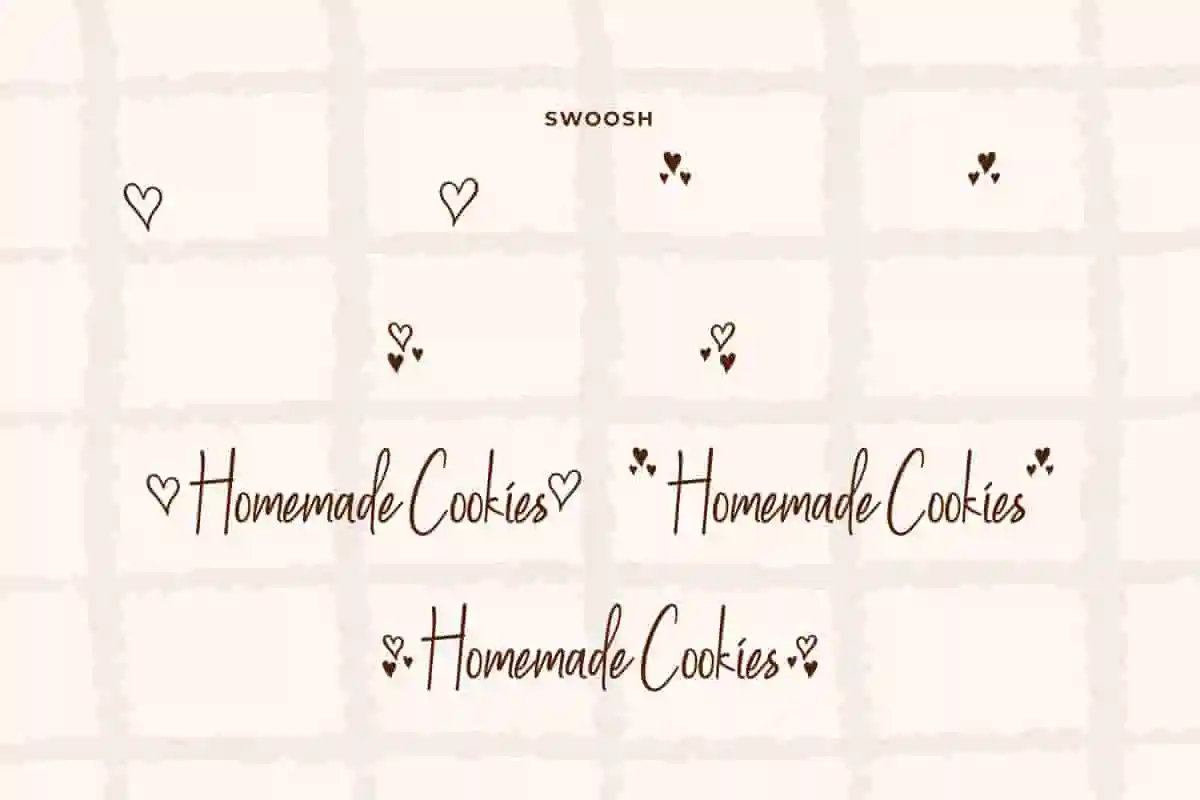 SWOOSH
Homemade Cookies Homemade Cookies
Homemade Cookies